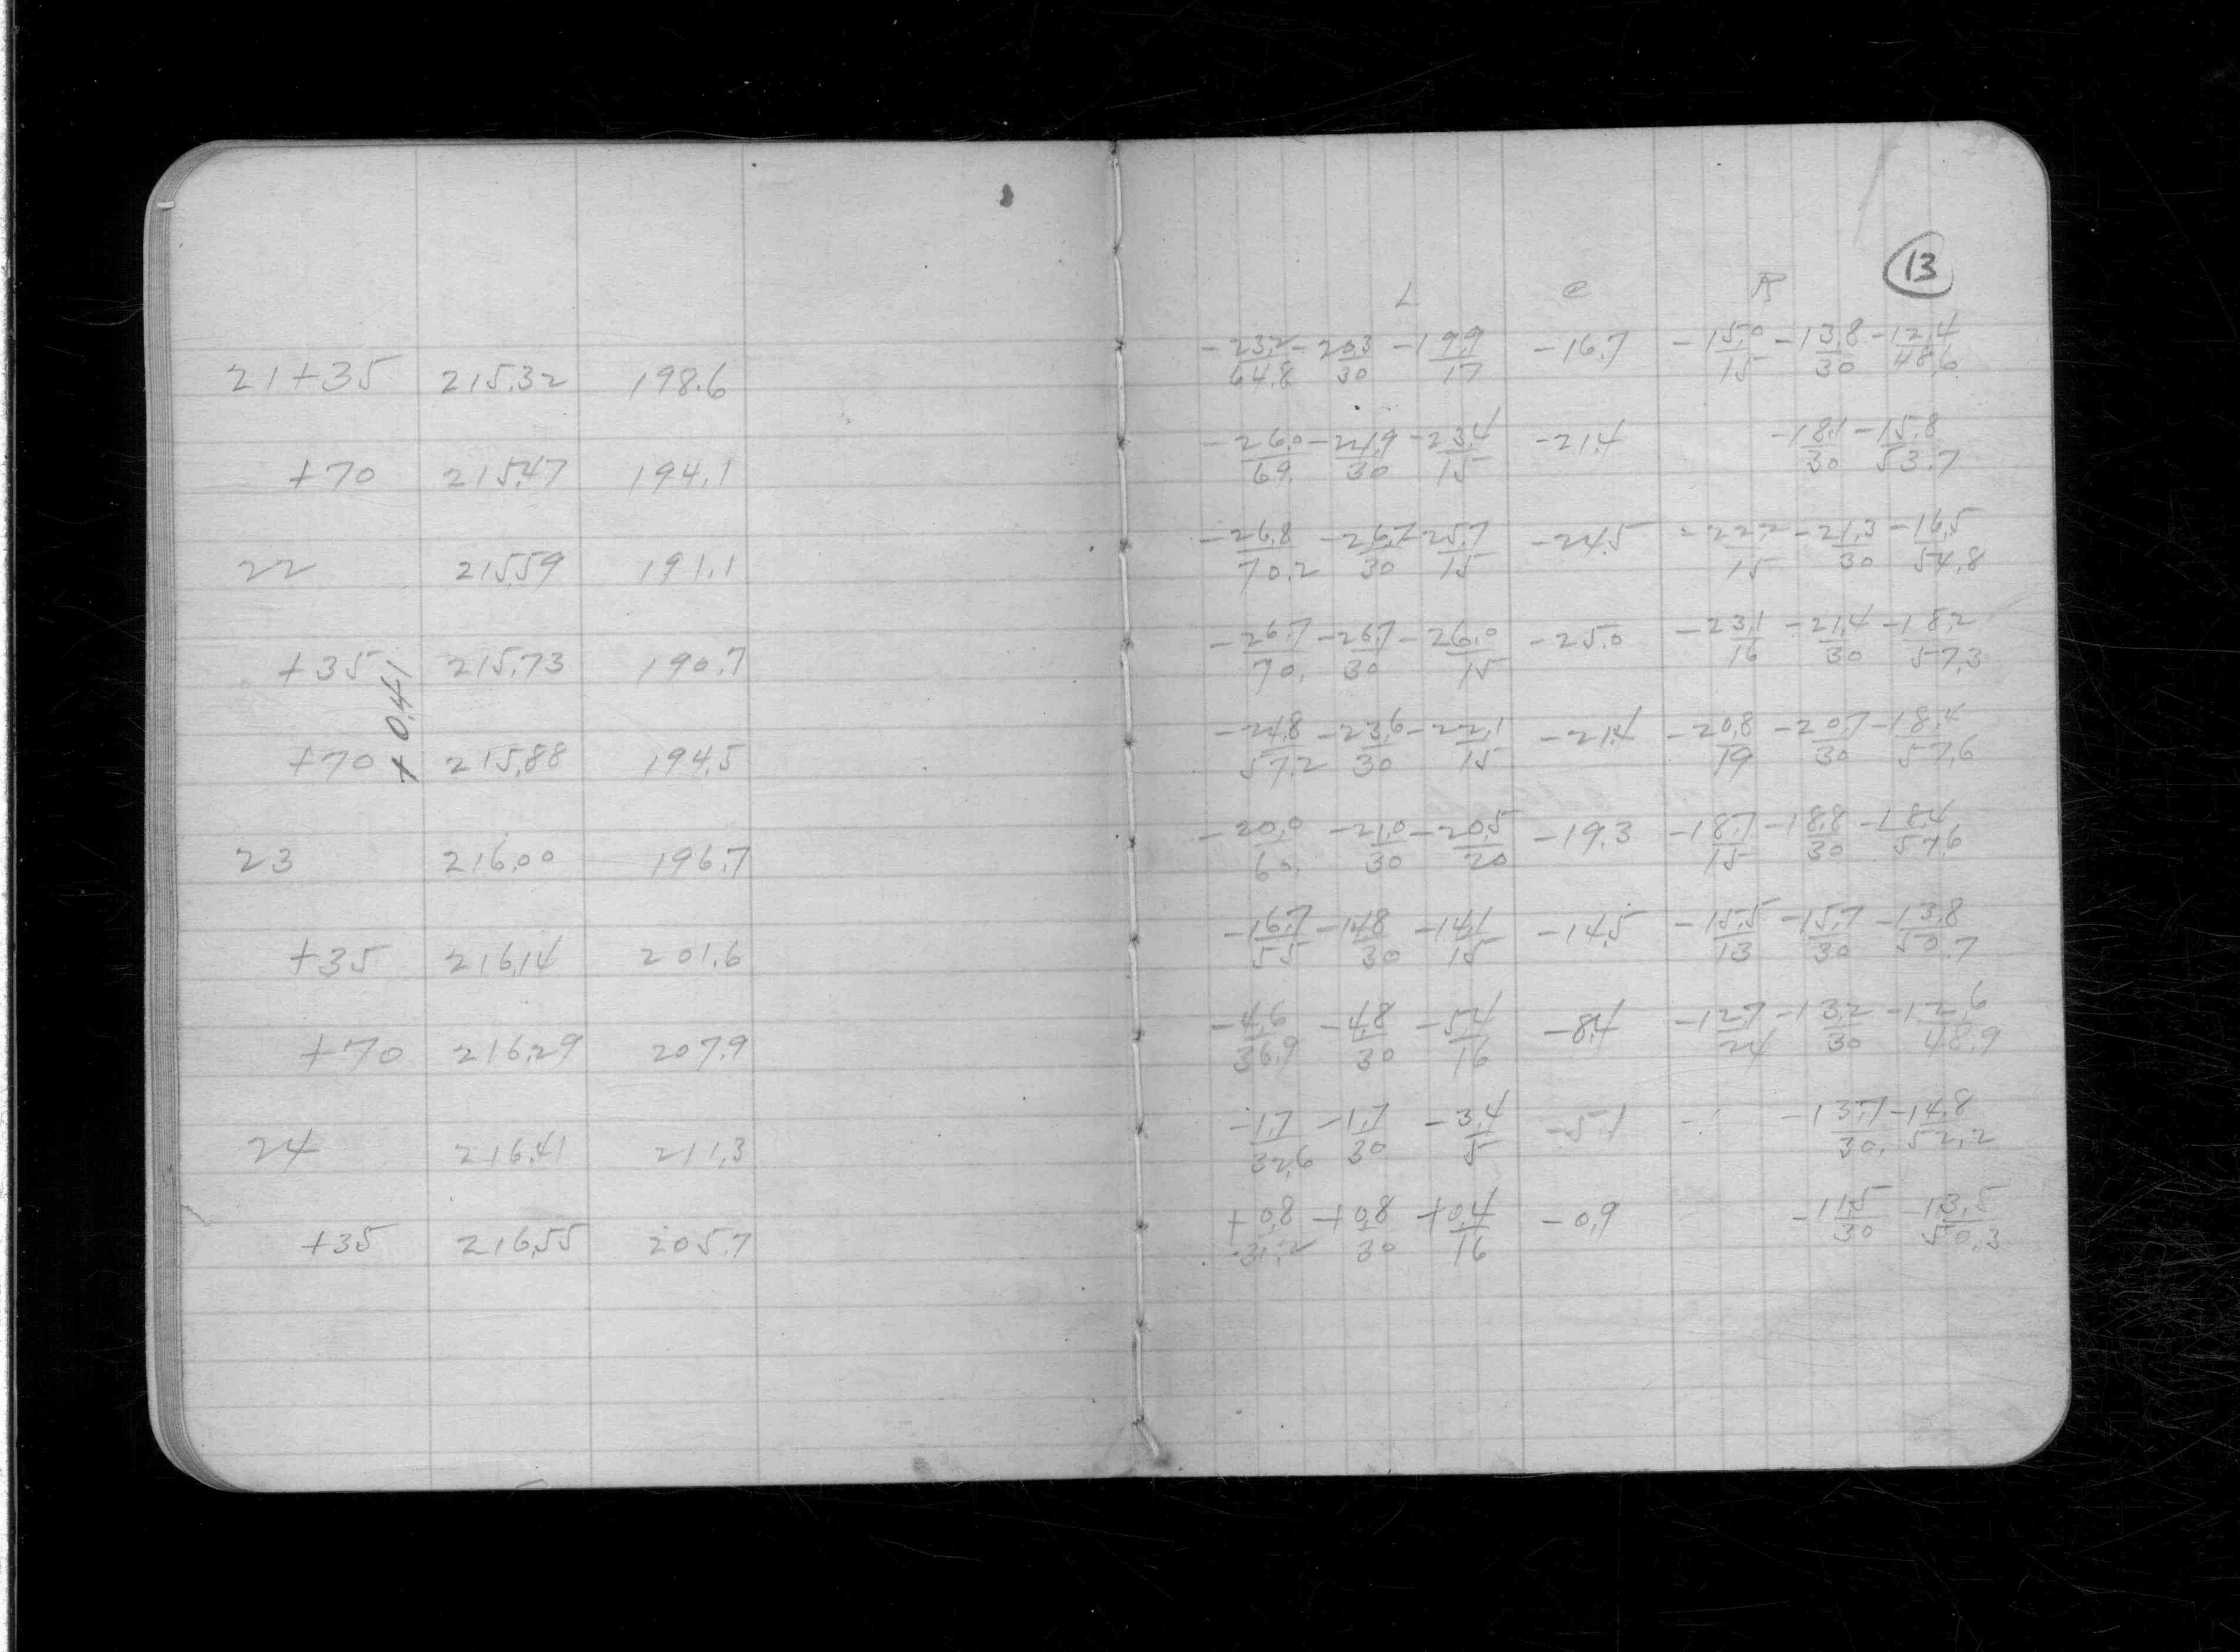 13
L C R
21+35 215.32 198.6 -23.2/64.8 -20.3/30 -19.9/17 -16.7 -15.0/15 -13.8/30 -12.4/48.6
+70 215.47 194.1 -26.0/69. -24.9/30 -23.4/15 -21.4 -18.1/30 -15.8/53.7
22 215.59 191.1 -26.8/70.2 -26.7/30 -25.7/15 -24.5 -22.2/15 -21.3/30 -16.5/54.8
+35 215.73 190.7 -26.7/70. -26.7/30 -26.0/15 -25.0 -23.1/16 -21.4/30 -18.2/57.3
+0.41
+70 215.88 194.5 -24.8/57.2 -23.6/30 -22.1/15 -21.4 -20.8/19 -20.7/30 -18.4/57.6
23 216.00 196.7 -20.0/60. -21.0/30 -20.5/20 -19.3 -18.7/15 -18.8/30 -18.4/57.6
+35 216.14 201.6 -16.7/55 -14.8/30 -14.1/15 -14.5 -15.5/13 -15.7/30 -13.8/50.7
+70 216.29 207.9 -4.6/36.9 -4.8/30 -5.4/16 -8.4 -12.7/24 -13.2/30 -12.6/48.9
24 216.41 211.3 -1.7/32.6 -1.7/30 -3.4/5 -5.1 -13.7/30. -14.8/52.2
+35 216.55 205.7 +0.8/31.2 +0.8/30 +0.4/16 -0.9 -11.5/30 -13.5/50.3